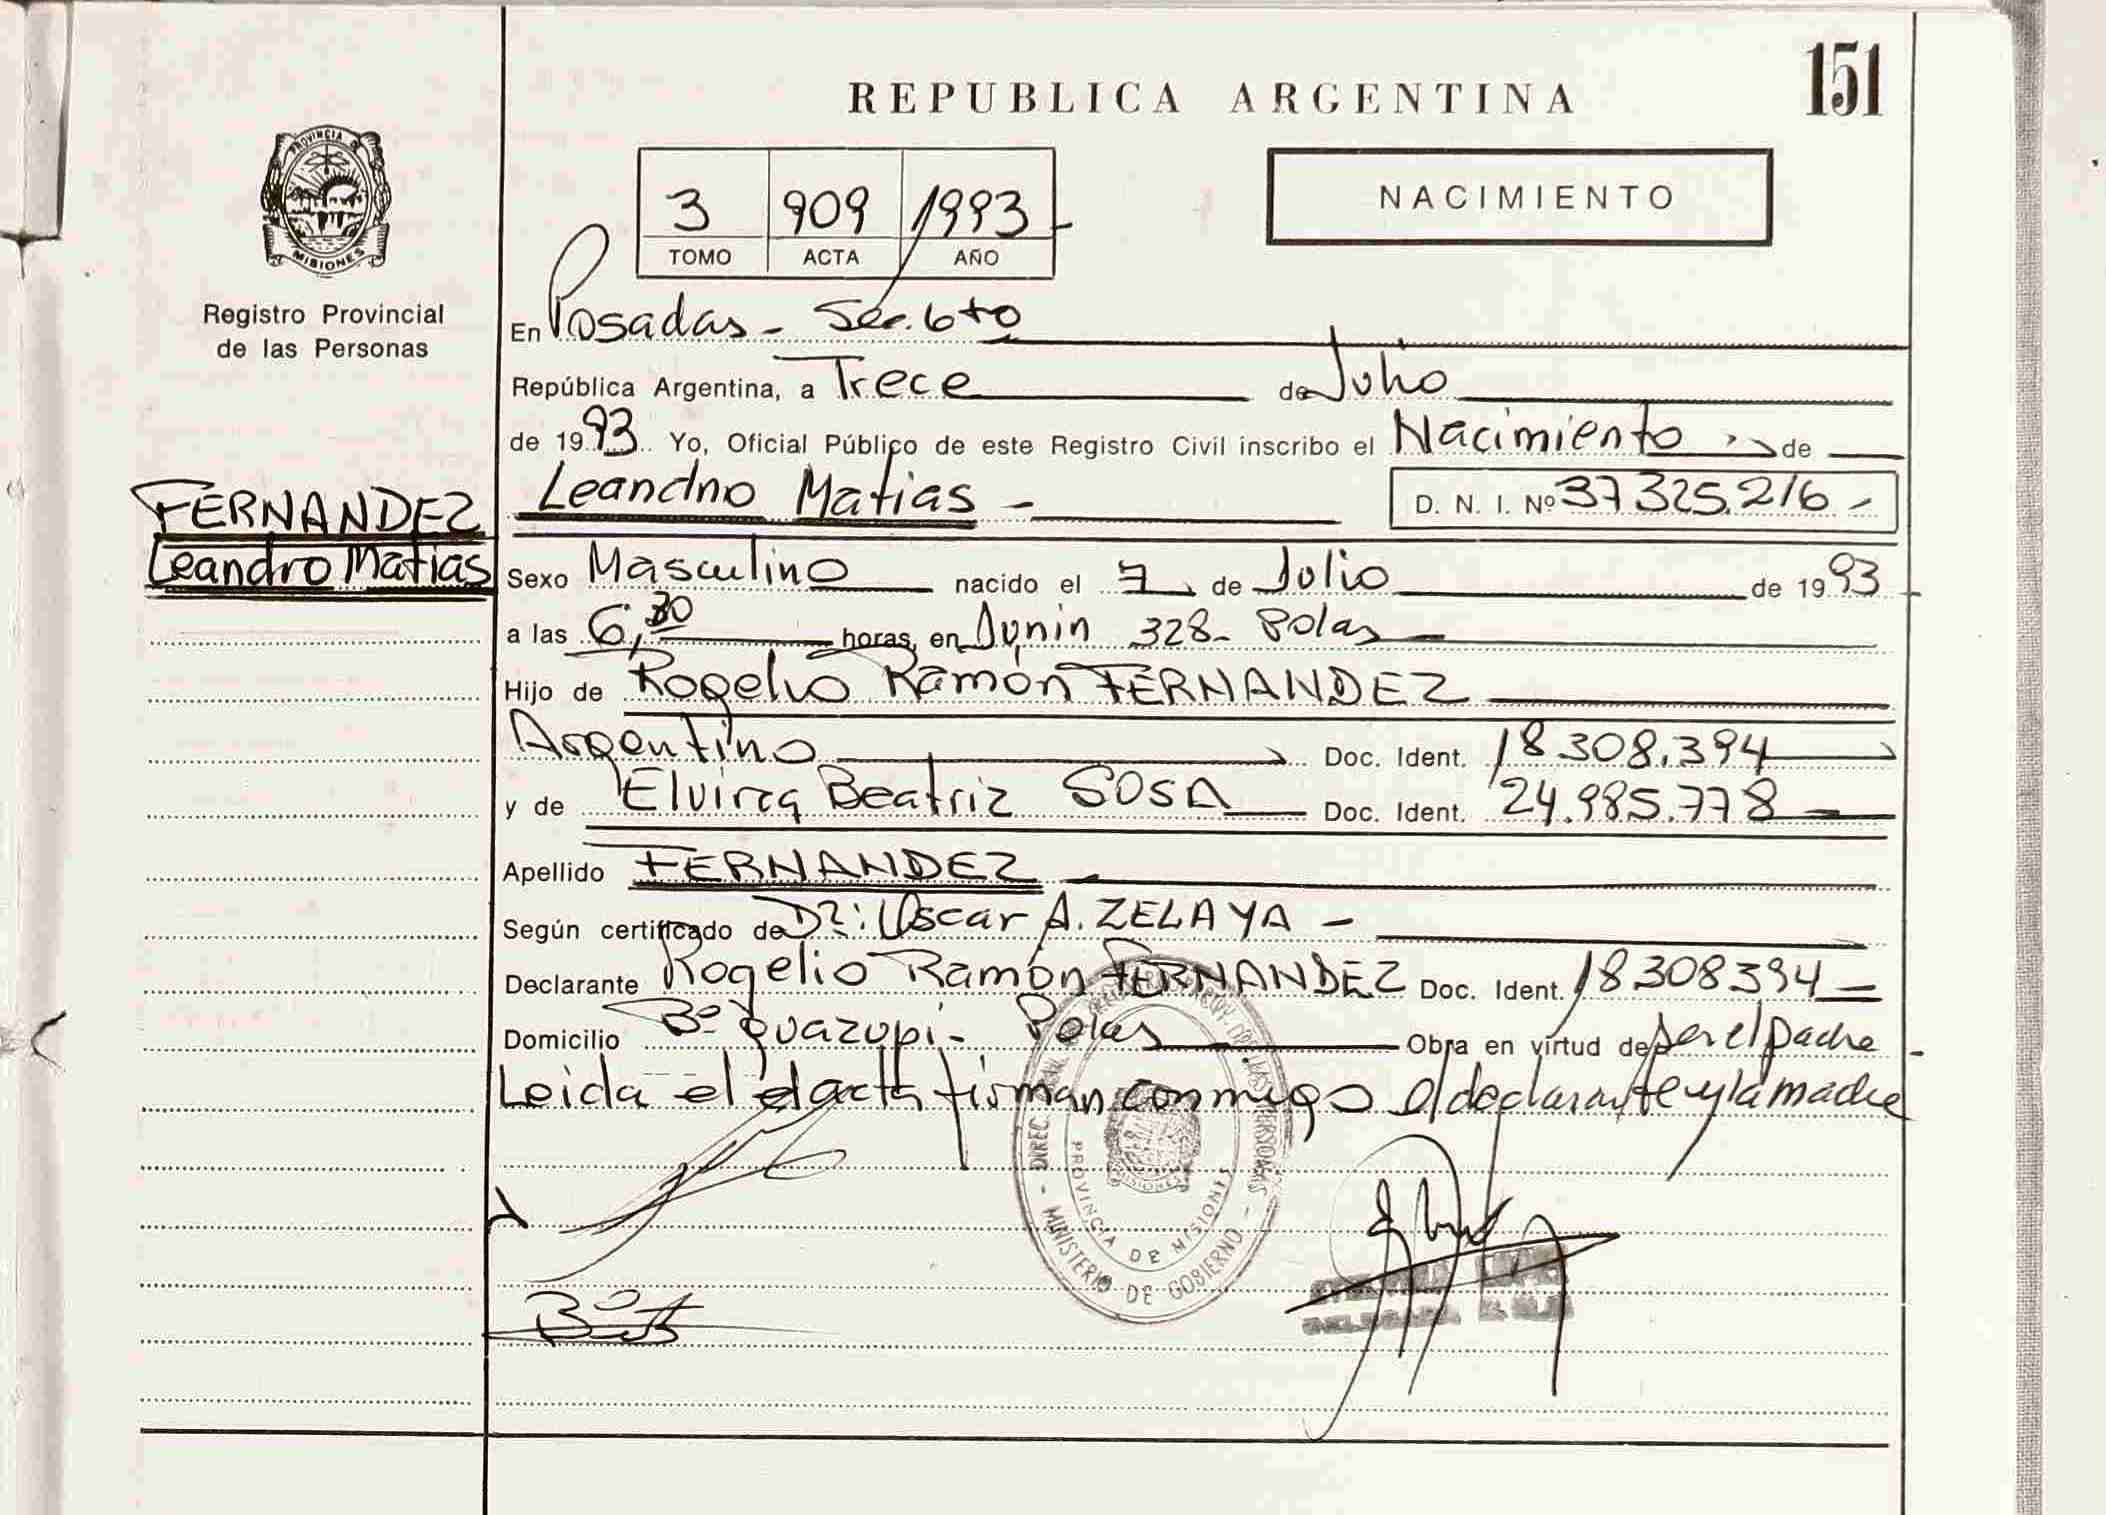 151
REPUBLICA ARGENTINA
PROVINCIA DE
MISIONES
Registro Provincial
de las Personas
NACIMIENTO
3 909 1993
TOMO ACTA AÑO
En Posadas - Sec. 6to
República Argentina, a Trece de Julio
de 1993 Yo, Oficial Público de este Registro Civil inscribo el Nacimiento de
FERNANDEZ
Leandro Matias
Leandro Matias - D. N. I. Nº 37325.216 -
Sexo Masculino nacido el 7 de Julio de 1993
a las 6,30 horas, en Junin 328 - Pdas
Hijo de Rogelio Ramón FERNANDEZ
Argentino Doc. Ident. 18308.394
y de Elvira Beatriz SOSA Doc. Ident. 24.985.778
Apellido FERNANDEZ
Según certificado de Dr.: Oscar A. ZELAYA -
Declarante Rogelio Ramón FERNANDEZ Doc. Ident. 18308394
Domicilio Bº Guazupi - Pdas Obra en virtud de ser el padre
Leida el acta firman conmigo el declarante y la madre
PROVINCIA DE MISIONES
MINISTERIO DE GOBIERNO